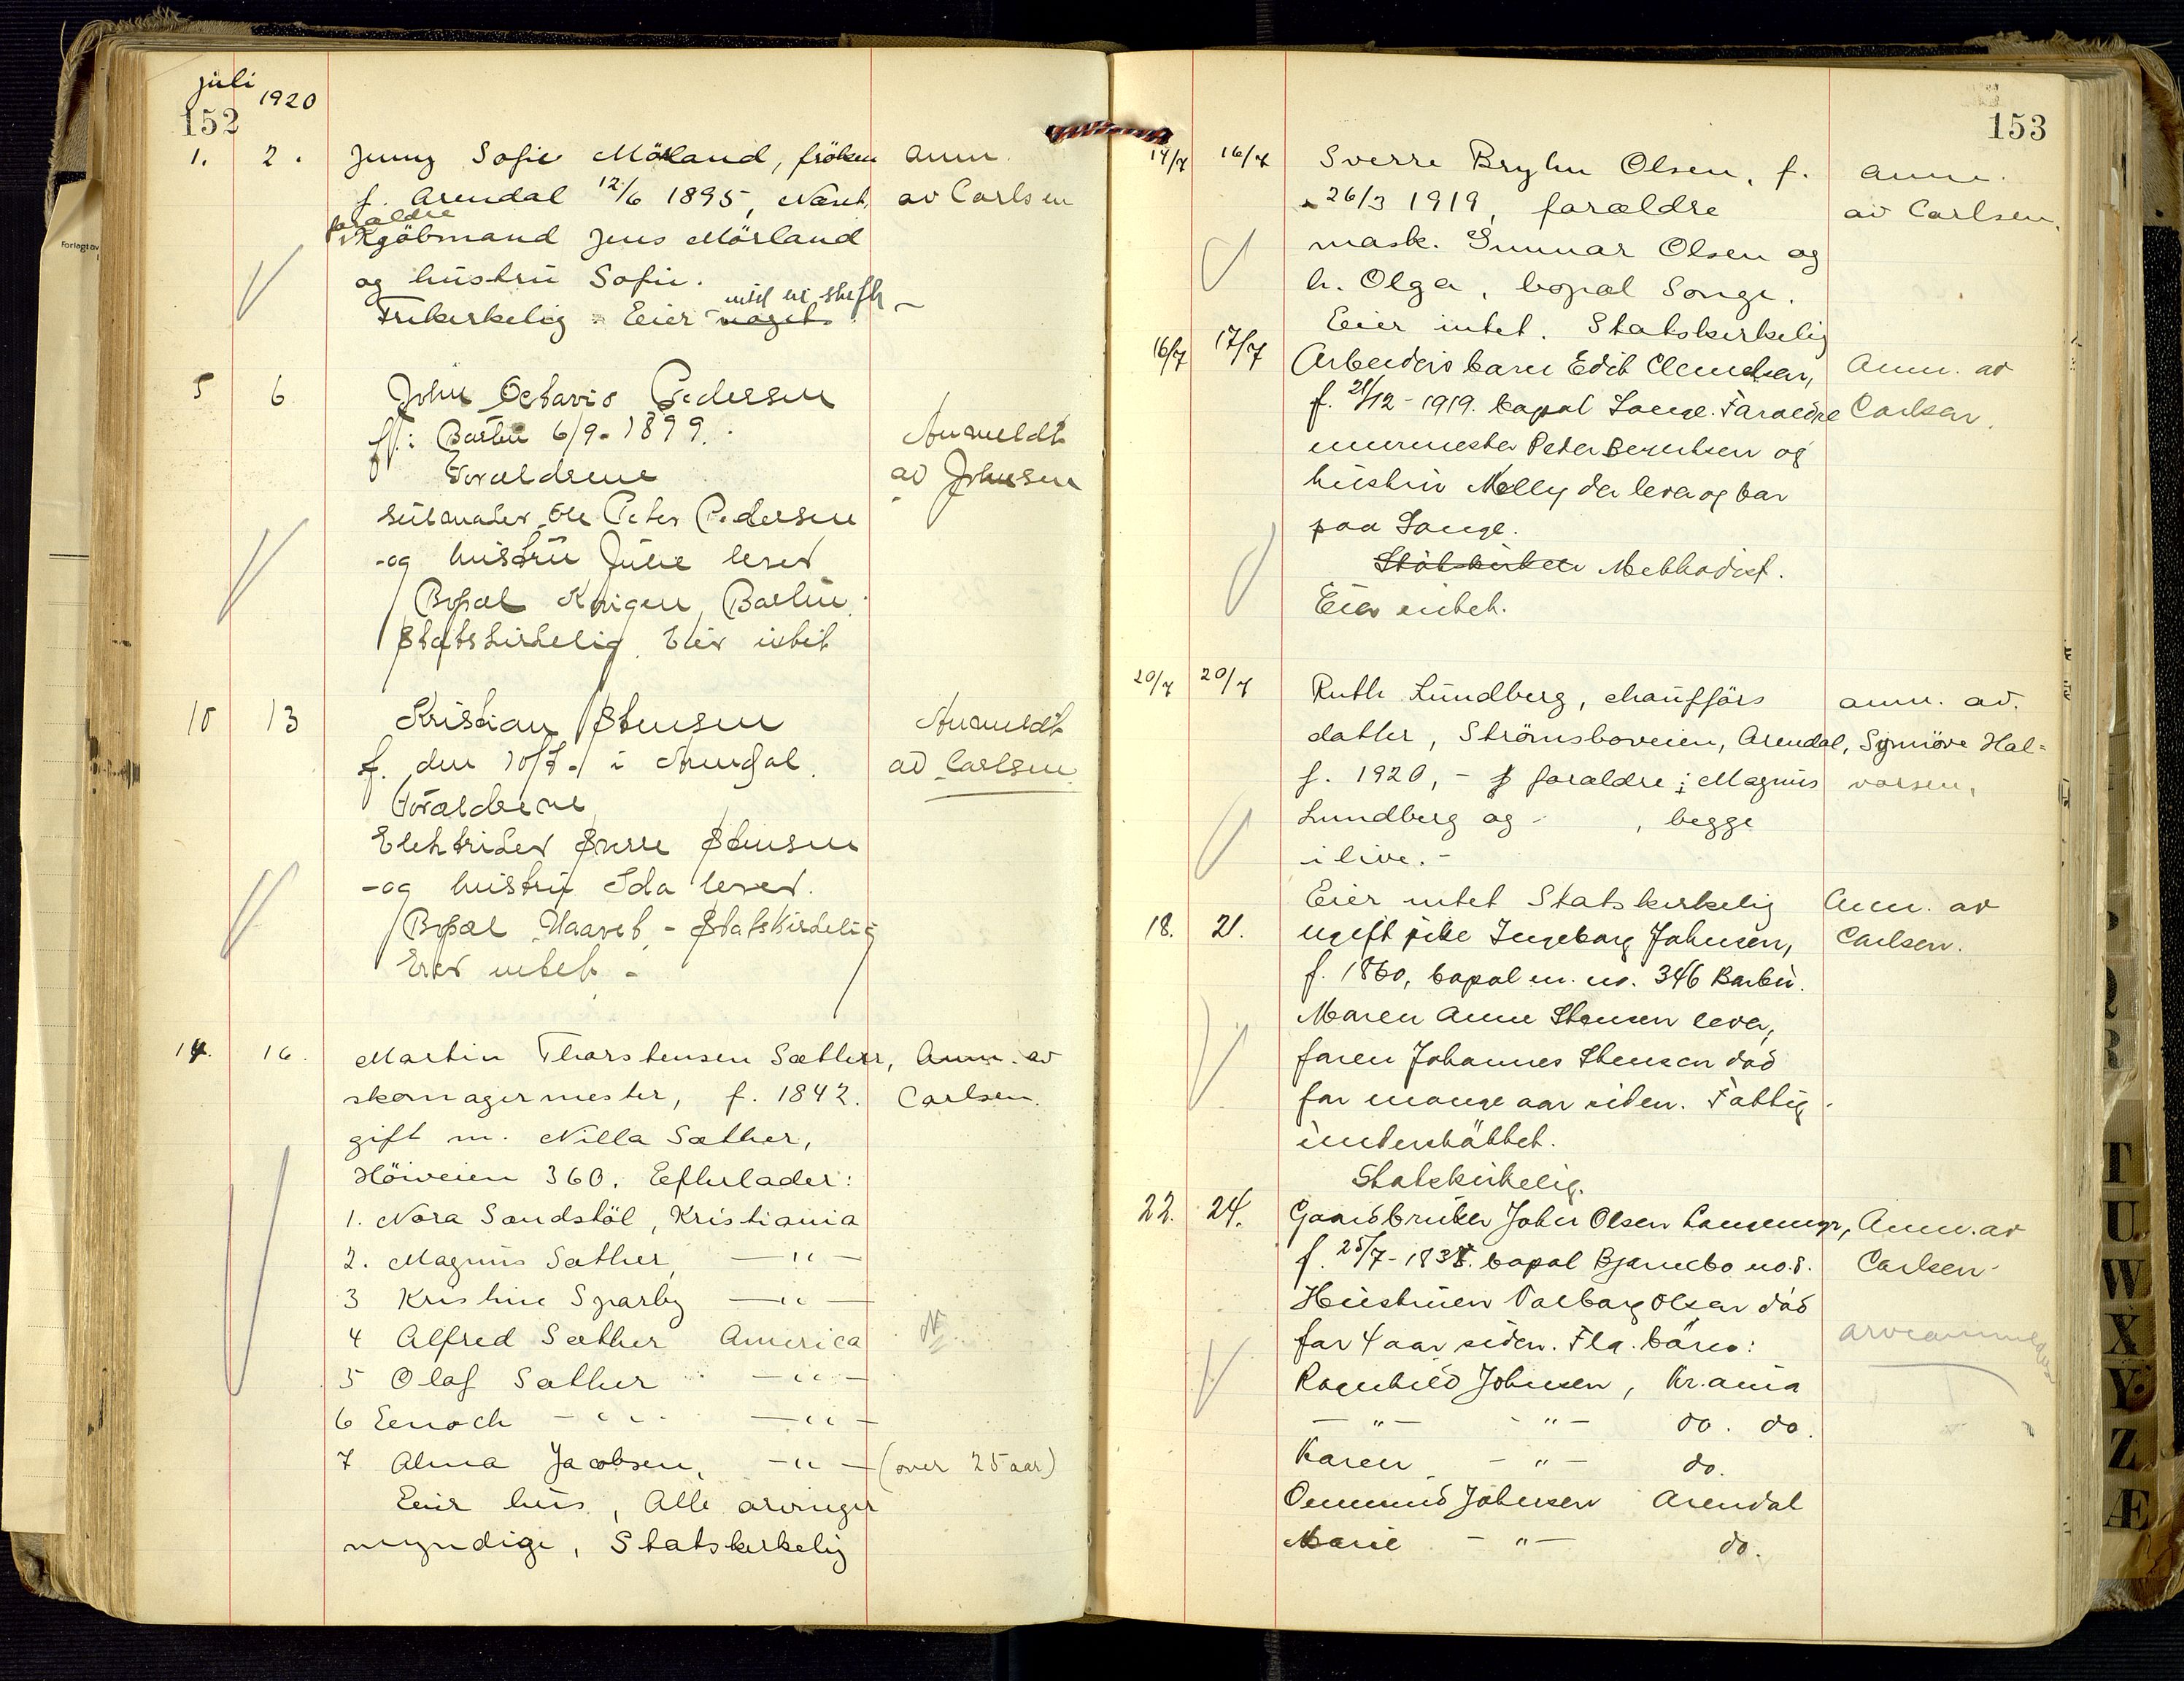 juli
1920
152
1. 2. Jenny Sofie Mörland, fröken anm.
f. Arendal 12/6 1895, Næset, av Carlsen
foraldre
Kjöbmand Jens Mörland
og hustru Sofie.
intet ei skifte
Frikirkelig - Eier noget.
5 6 John Octavio Pedersen
f. i Barbu 6/9-1899. Anmeldt
Foraldrene av Johnsen
Ole Peter Pedersen
-og hustru Julie lever
Bopæl Barbu.
Statskirkelig. Eier intet
10 13 Kristian Stensen Anmeldt
f. den 10/7. i Arendal. av Carlsen
Foraldrene
Elektriker Sverre Stensen
-og hustru Ida lever.
Bopæl Haavet - Statskirkelig
Eier intet -
14. 16. Martin Thorstensen Sæther, Anm. av
skomagermester, f. 1842. Carlsen.
gift m. Nilla Sæther,
Höiveien 360. Efterlader:
1. Nora Sandstöl, Kristiania
2. Magnus Sæther, —"—
3 Kristine Sparby —"—
4 Alfred Sæther America
5 Olaf Sæther —"—
6 Eenoch —"— —"—
7 Alma Jacobsen, —"— (over 25 aar)
Eier hus, Alle arvinger
myndige, Statskirkelig
153
14/7 16/7 Sverre Bryhn Olsen, f. anm.
26/3 1919, forældre av Carlsen.
mask. Gunnar Olsen og
h. Olga, bopæl Songe.
Eier intet. Statskirkelig
16/7 17/7 Arbeiders barn Edit Clemetsen, Anm. av
f. 21/12-1919. bopæl Songe. Foraldre Carlsen.
murmester Peter Berntsen og
hustru Nelly der lever og bor
paa Songe.
Statskirken Methodist.
Eier intet.
20/7 20/7 Ruth Lundberg, chaufförs anm. av.
datter, Strömsboveien, Arendal, Synnöve Hal-
f. 1920, - f foraldre: Magnus vorsen.
Lundberg og - , begge
i live. -
Eier intet Statskirkelig Anm. av
18. 21. ugift pike Ingeborg Johnsen, Carlsen.
f. 1860, bopæl m. no. 346 Barbu.
Maren Anne Stensen lever,
faren Johannes Stensen död
for mange aar siden. Fattig-
understöttet.
Statskirkelig.
22. 24. Gaardbruker John Olsen Langemyr, Anm. av
f. 25/7-1838. bopæl Bjørnebo no. 8. Carlsen
Hustruen Valborg Olsen död
for 4 aar siden. Fla. börn: arveanmeldes
Ragnhild Johnsen, Kr.ania
—"— —"— do. do.
Karen —"— do.
Ommund Johnsen Arendal
Marie —"— do.
T
U
W
X
Y
Z
Æ